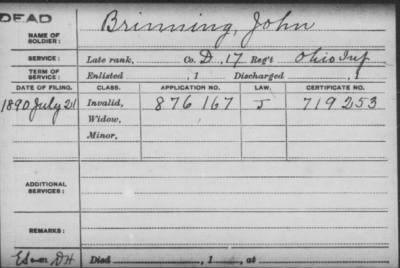 DEAD
Brinning, John
NAME OF SOLDIER:
SERVICE: Late rank, Co. D, 17 Reg't Ohio Inf
TERM OF SERVICE: Enlisted , 1 Discharged , 1
DATE OF FILING. CLASS. APPLICATION NO. LAW. CERTIFICATE NO.
1890 July 21 Invalid, 876167 J 719253
Widow,
Minor,
ADDITIONAL SERVICES:
REMARKS:
Died , 1 , at